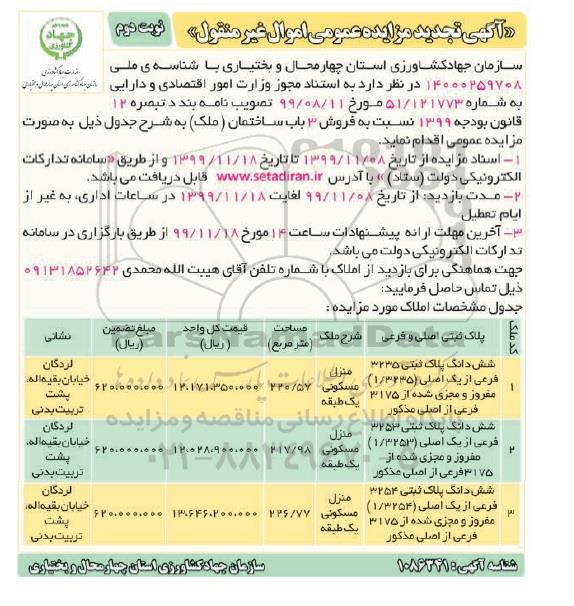 «آگهی تجدید مزایده عمومی اموال غیر منقول»
نوبت دوم
جهاد کشاورزی
وزارت جهاد کشاورزی
سازمان جهاد کشاورزی استان چهارمحال و بختیاری
سازمان جهادکشاورزی استان چهارمحال و بختیاری با شناسه ی ملی
۱۴۰۰۰۲۵۹۷۰۸ در نظر دارد به استناد مجوز وزارت امور اقتصادی و دارایی
به شماره ۵۱/۱۲۱۷۷۳ مورخ ۹۹/۰۸/۱۱ تصویب نامه بند د تبصره ۱۲
قانون بودجه ۱۳۹۹ نسبت به فروش ۳ باب ساختمان (ملک) به شرح جدول ذیل به صورت
مزایده عمومی اقدام نماید.
۱- اسناد مزایده از تاریخ ۱۳۹۹/۱۱/۰۸ تا تاریخ ۱۳۹۹/۱۱/۱۸ و از طریق «سامانه تدارکات
الکترونیکی دولت (ستاد)» با آدرس www.setadiran.ir قابل دریافت می باشد.
۲- مدت بازدید: از تاریخ ۹۹/۱۱/۰۸ لغایت ۱۳۹۹/۱۱/۱۸ در ساعات اداری، به غیر از
ایام تعطیل
۳- آخرین مهلت ارائه پیشنهادات ساعت ۱۴ مورخ ۹۹/۱۱/۱۸ از طریق بارگزاری در سامانه
تدارکات الکترونیکی دولت می باشد.
جهت هماهنگی برای بازدید از املاک با شماره تلفن آقای هیبت الله محمدی ۰۹۱۳۱۸۵۲۶۴۲
ذیل تماس حاصل فرمایید:
جدول مشخصات املاک مورد مزایده:
کد ملک | پلاک ثبتی اصلی و فرعی | شرح ملک | مساحت (متر مربع) | قیمت کل واحد (ریال) | مبلغ تضمین (ریال) | نشانی
۱ | شش دانگ پلاک ثبتی ۳۲۳۵ فرعی از یک اصلی (۱/۳۲۳۵) مفروز و مجزی شده از ۳۱۷۵ فرعی از اصلی مذکور | منزل مسکونی یک طبقه | ۲۲۰/۵۷ | ۱۲،۱۷۱،۳۵۰،۰۰۰ | ۶۲۰،۰۰۰،۰۰۰ | لردگان خیابان بقیه‌اله، پشت تربیت‌بدنی
۲ | شش دانگ پلاک ثبتی ۳۲۵۳ فرعی از یک اصلی (۱/۳۲۵۳) مفروز و مجزی شده از ۳۱۷۵ فرعی از اصلی مذکور | منزل مسکونی یک طبقه | ۲۱۷/۹۸ | ۱۲،۰۲۸،۹۰۰،۰۰۰ | ۶۲۰،۰۰۰،۰۰۰ | لردگان خیابان بقیه‌اله، پشت تربیت‌بدنی
۳ | شش دانگ پلاک ثبتی ۳۲۵۴ فرعی از یک اصلی (۱/۳۲۵۴) مفروز و مجزی شده از ۳۱۷۵ فرعی از اصلی مذکور | منزل مسکونی یک طبقه | ۲۲۶/۷۷ | ۱۳،۶۴۶،۲۰۰،۰۰۰ | ۶۲۰،۰۰۰،۰۰۰ | لردگان خیابان بقیه‌اله، پشت تربیت‌بدنی
شناسه آگهی: ۱۰۸۶۳۴۱
سازمان جهاد کشاورزی استان چهارمحال و بختیاری